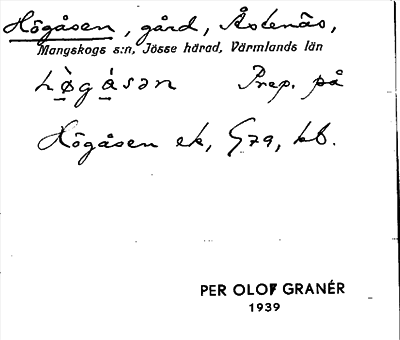 Högåsen, gård, Åstenäs,
Mangskogs s:n, Jösse härad, Värmlands län
hø̀gásən Prep. på
Högåsen ek, G79, kb.
PER OLOF GRANÉR
1939